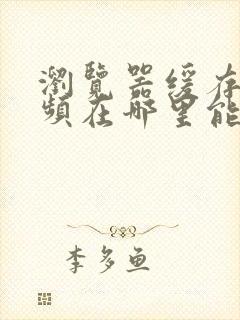 瀏覽器緩存
頻在哪里能
李多魚